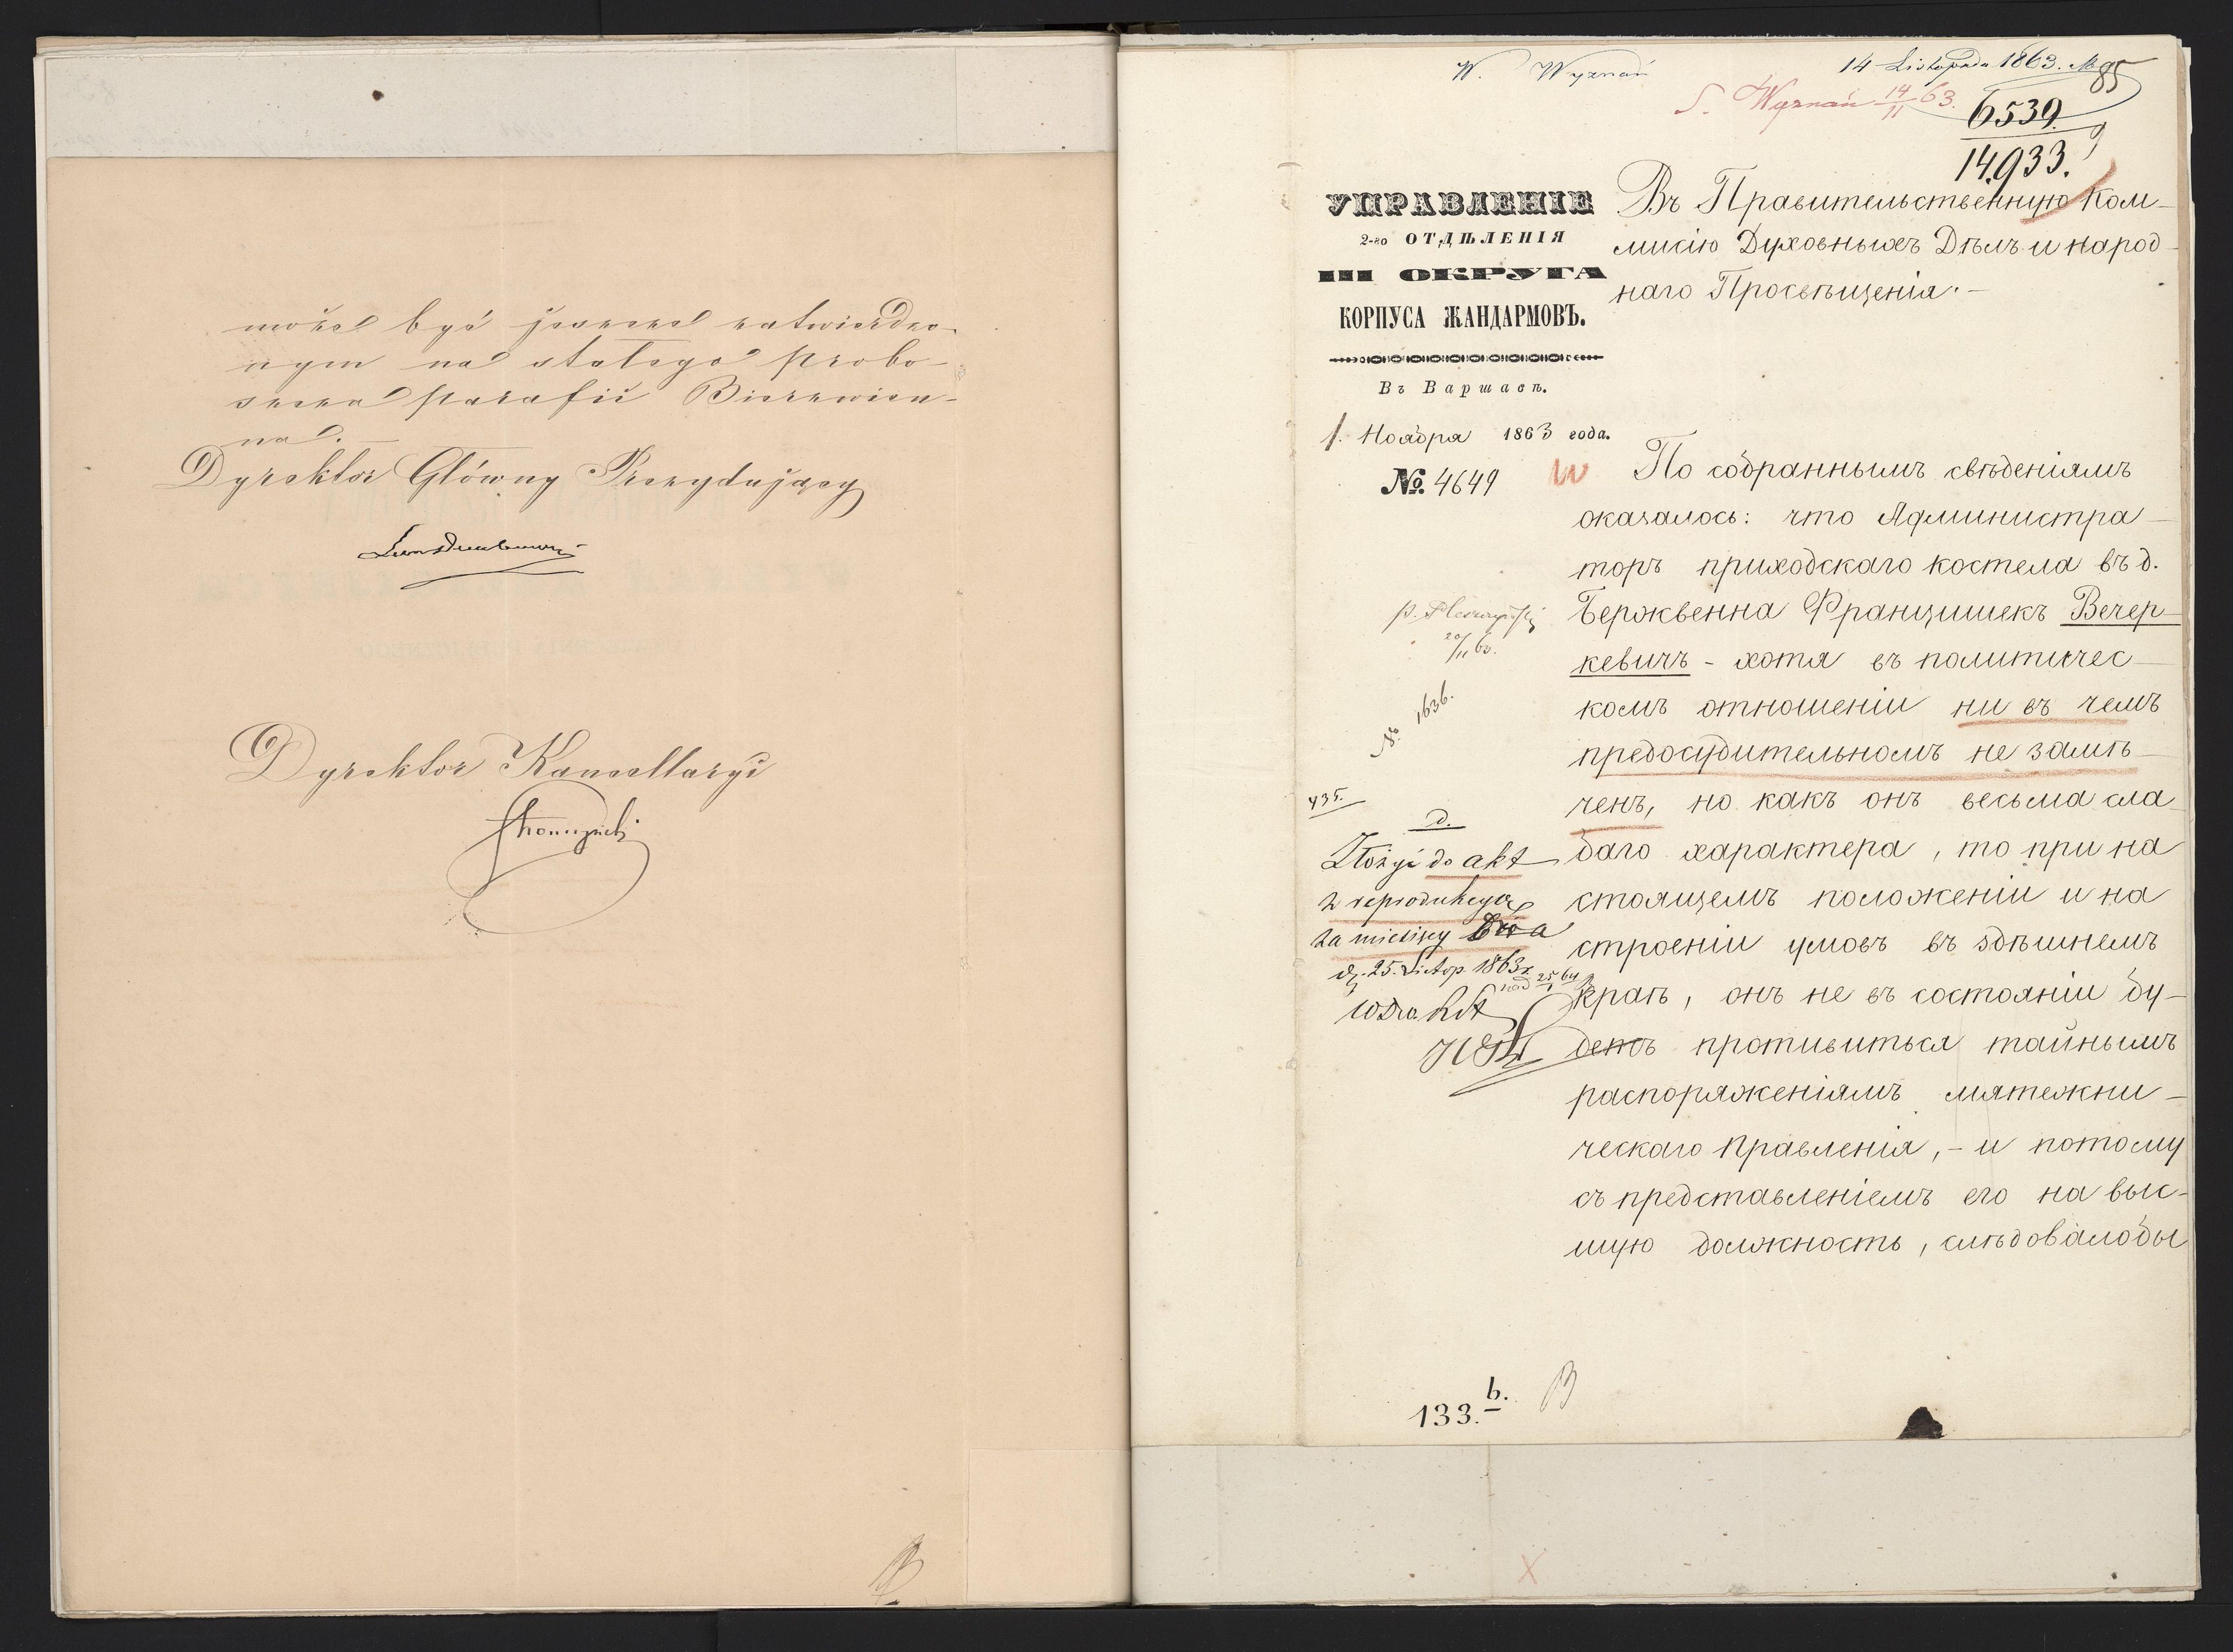 może być jeszcze zatwierdzo-
nym na stałego probo-
szcza parafii Bierzwien-
na.
Dyrektor Główny Prezydujący
Dyrektor Kancellaryi
W. Wyznań
14 Listopada 1863. №
85
S. Wyznań 14/11 63.
6539
14.933.
УПРАВЛЕНІЕ
2-го ОТДѢЛЕНІЯ
III ОКРУГА
КОРПУСА ЖАНДАРМОВЪ.
Въ Варшавѣ.
1. Ноября 1863 года.
№ 4649
Въ Правительственную Ком-
мисію Духовныхъ Дѣлъ и Народ-
наго Просвѣщенія.-
По собраннымъ свѣденіямъ
оказалось: что Администра-
торъ приходскаго костела въ д.
Бержвенна Францишекъ Вечер-
кевичъ - хотя въ политичес-
комъ отношеніи ни въ чемъ
предосудительномъ не замѣ-
ченъ, но какъ онъ весьма сла-
баго характера, то при на-
стоящемъ положеніи и на-
строеніи умовъ въ здѣшнемъ
краѣ, онъ не въ состояніи бу-
детъ противиться тайнымъ
распоряженіямъ мятежни-
ческаго Правленія, - и потому
съ представленіемъ его на выс-
шую должность, слѣдовалобы
20/11 63.
№ 1636.
435.
D.
Złożyć do akt
z reprodukcyą
za miesięcy dwa
d. 25. Listop. 1863 r.
133. b.
B
X